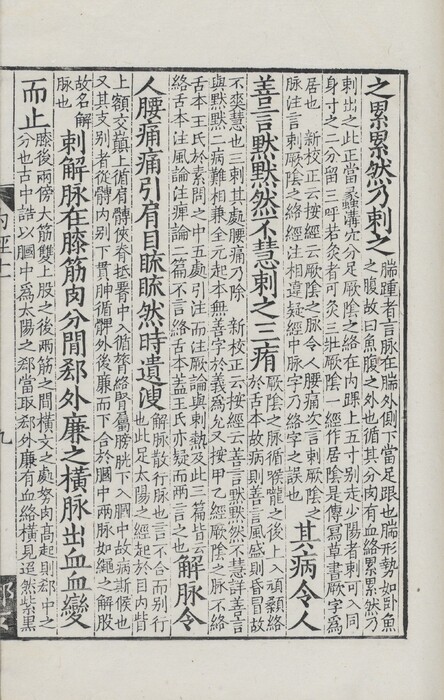 之累累然乃刺之
腨踵者言脉在腨外側下當足跟也腨形勢如卧魚
之腹故曰魚腹之外也循其分肉有血絡累累然乃
刺出之此正當蠡溝穴分足厥陰之絡在内踝上五寸别走少陽者刺可入同
身寸之二分留三呼若灸者可灸三壯厥陰一經作居陰是傳寫草書厥字爲
居也　新校正云按經云厥陰之脉令人腰痛次言刺厥陰之
脉注言刺厥陰之絡經注相違疑經中脉字乃絡字之誤也
其病令人
善言默默然不慧刺之三痏
厥陰之脉循喉嚨之後上入頏顙絡
於舌本故病則善言風盛則昏冒故
不爽慧也三刺其處腰痛乃除　新校正云按經云善言默默然不慧詳善言
與默默二病難相兼全元起本無善字於義爲允又按甲乙經厥陰之脉不絡
舌本王氏於素問之中五處引注而注厥論與刺熱及此三篇皆云
絡舌本注風論注痺論二篇不言絡舌本蓋王氏亦疑而兩言之也
解脉令
人腰痛痛引肩目䀮䀮然時遺溲
解脉散行脉也言不合而别行
也此足太陽之經起於目内眥
上額交巔上循肩髆俠脊抵腰中入循膂絡腎屬膀胱下入膕中故病斯候也
又其支别者從髆内别下貫胂循髀外後廉而下合於膕中兩脉如繩之解股
故名解
脉也
刺解脉在膝筋肉分間郄外廉之橫脉出血血變
而止
膝後兩傍大筋雙上股之後兩筋之間橫文之處努肉高起則郄中之
分也古中誥以膕中爲太陽之郄當取郄外廉有血絡橫見迢然紫黒
九